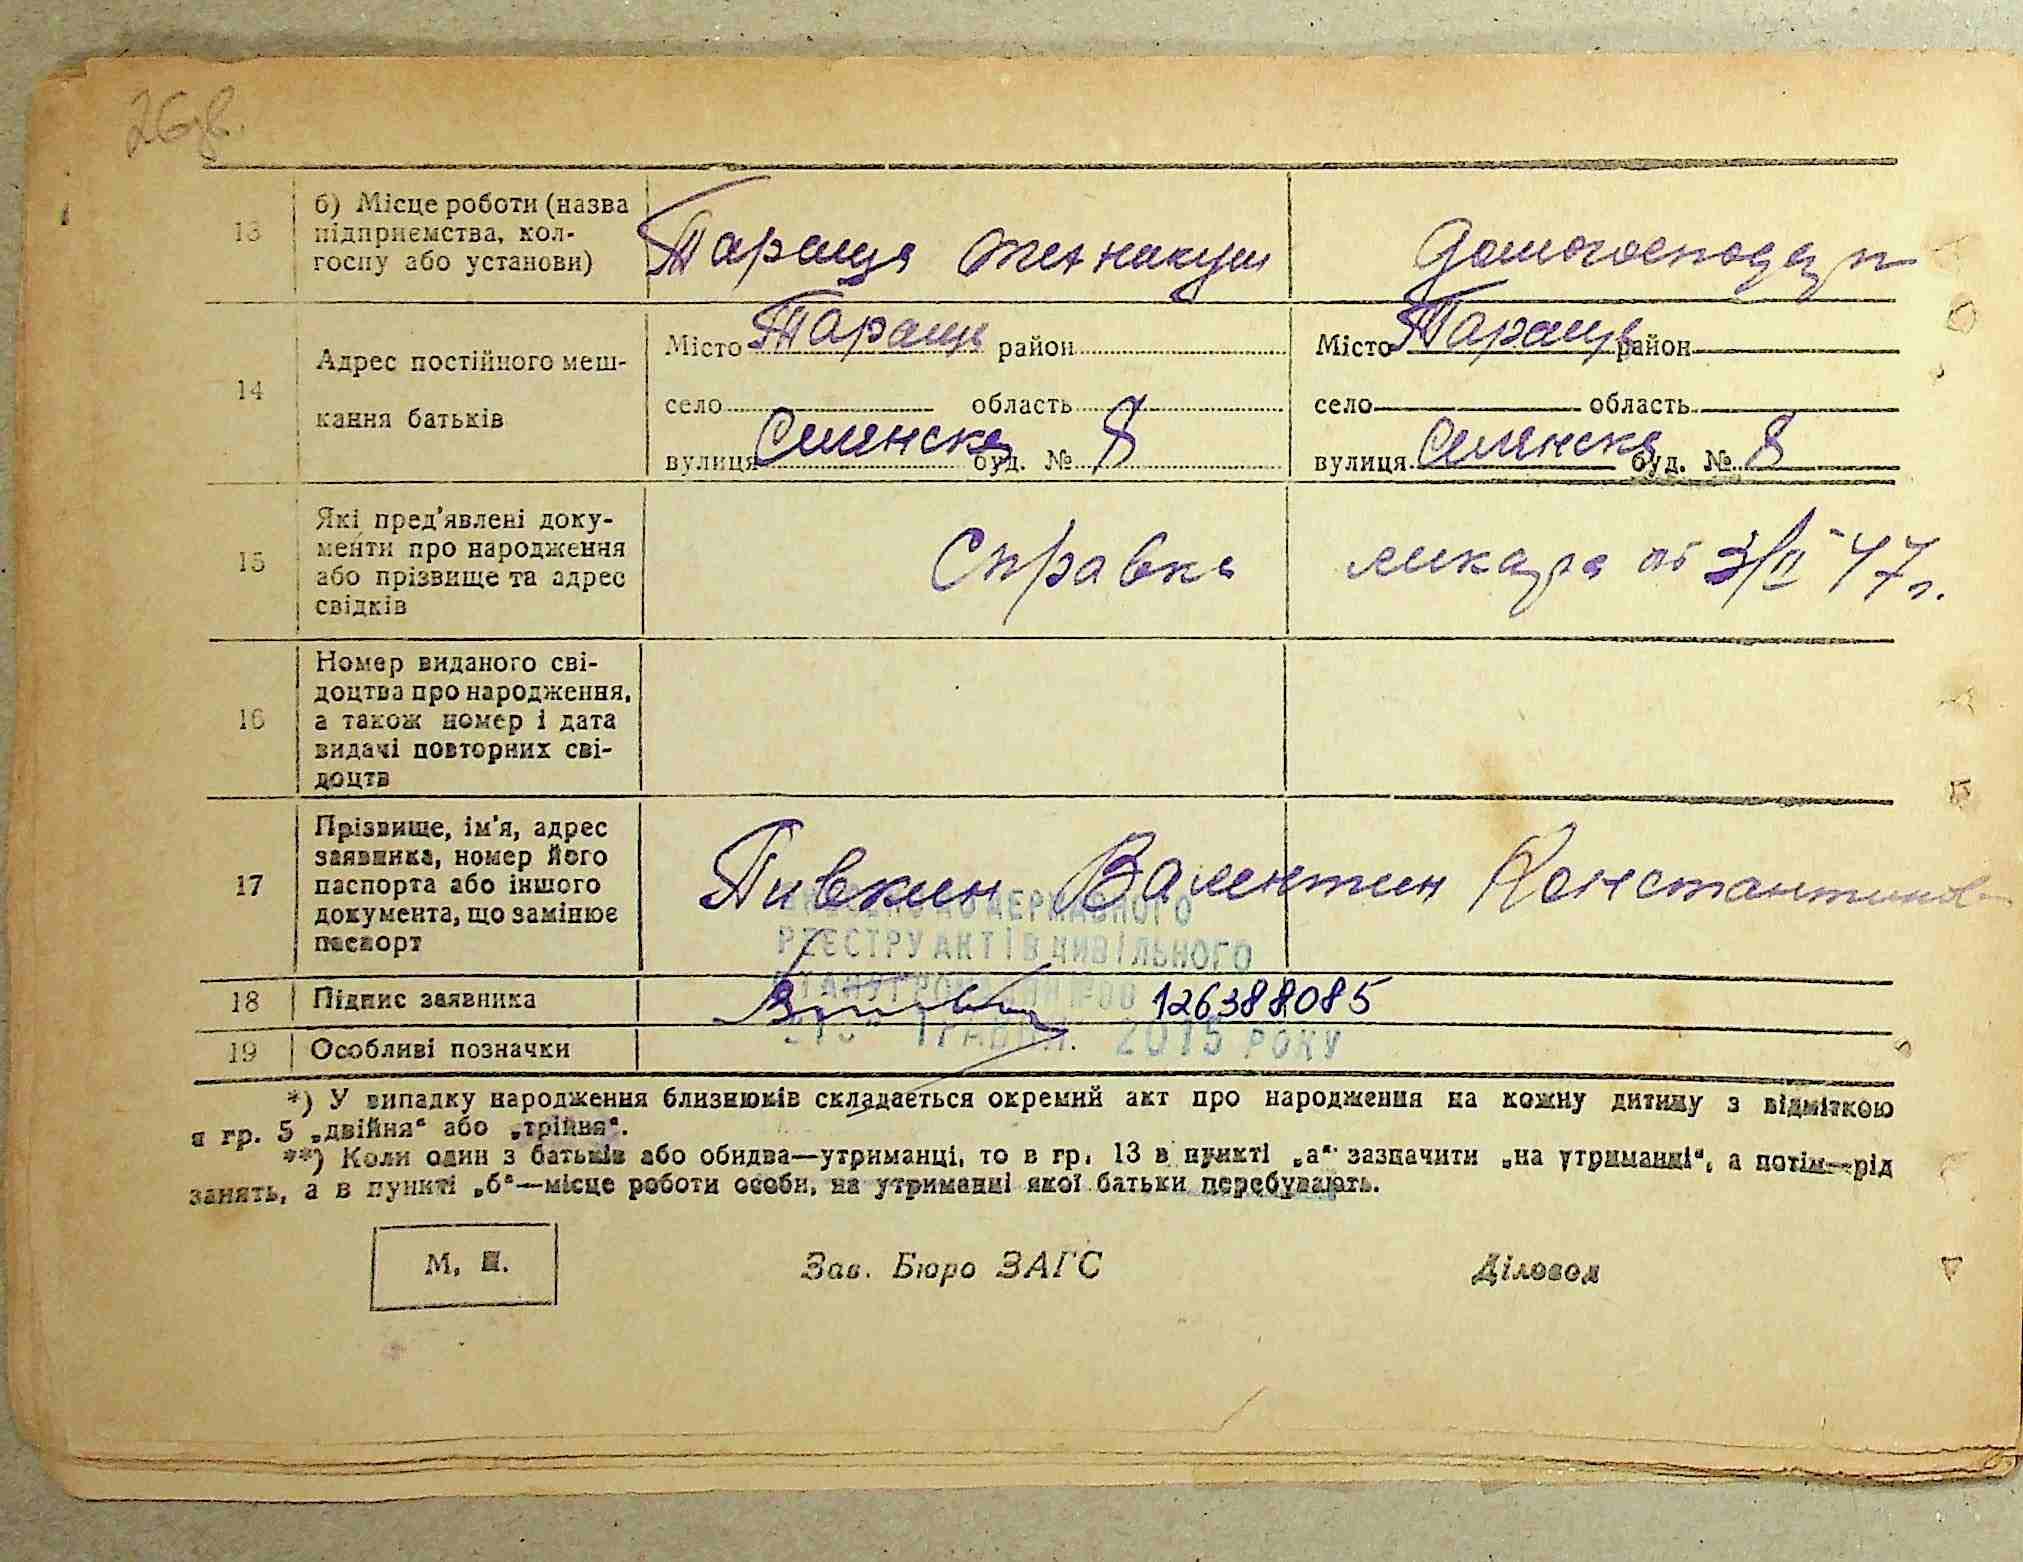 26зв.
13
б) Місце роботи (назва
підприємства, кол-
госпу або установи)
Тараща технікум
домогосподар
14
Адрес постійного меш-
кання батьків
Місто Тараща район
село область
вулиця Селянска буд. № 8
Місто Тараща район
село область
вулиця Селянска буд. № 8
15
Які пред'явлені доку-
менти про народження
або прізвище та адрес
свідків
Справка ликаря от 3/II-47 г.
16
Номер виданого сві-
доцтва про народження,
а також номер і дата
видачі повторних сві-
доцтв
17
Прізвище, ім'я, адрес
заявника, номер його
паспорта або іншого
документа, що замінює
паспорт
Пивкин Валентин Константинов
ДЕРЖАВНОГО
РЕЄСТРУ АКТІВ ЦИВІЛЬНОГО
СТАНУ ГРОМАДЯН
18
Підпис заявника
126388085
ТРАВНЯ 2015 РОКУ
19
Особливі позначки
*) У випадку народження близнюків складається окремий акт про народження на кожну дитину з відміткою
в гр. 5 „двійня“ або „трійня“.
**) Коли один з батьків або обидва—утриманці, то в гр. 13 в пункті „а“ зазначити „на утриманні“, а потім—рід
занять, а в пункті „б“—місце роботи особи, на утриманні якої батьки перебувають.
М. П.
Зав. Бюро ЗАГС
Діловод